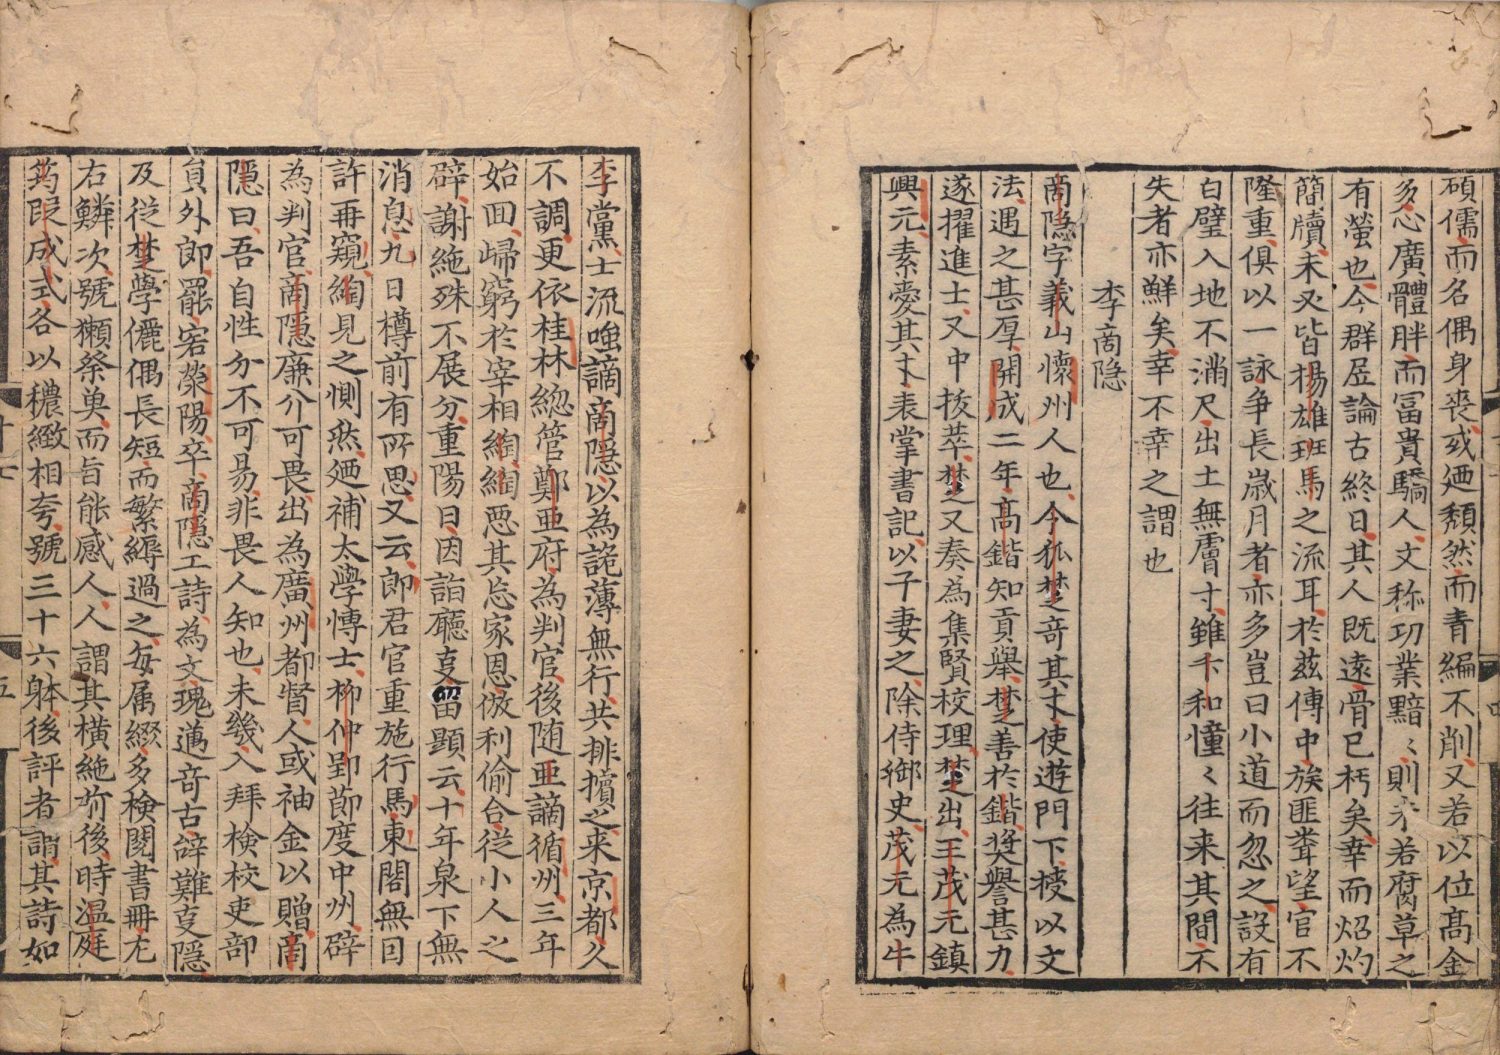 碩儒而名偶身喪或迺頽然而青編不削又若以位髙金
多心廣體胖而冨貴驕人文称功業黯〻則未若腐草之
有螢也今群居論古終日其人既逺骨已朽矣幸而炤灼
簡牘未必皆楊雄班馬之流耳於兹傳中族匪聋望官不
隆重俱以一詠争長歳月者亦多豈曰小道而忽之設有
白璧入地不滿尺出土無膚寸雖卞和憧〻往来其間不
失者亦鮮矣幸不幸之謂也
李商隐
商隐字義山懐州人也令狐楚竒其才使遊門下授以文
法遇之甚厚開成二年髙鍇知貢舉楚善於鍇奨譽甚力
遂擢進士又中抜萃楚又奏為集賢校理楚出王茂元鎮
興元素愛其才表掌書記以子妻之除侍御史茂元為牛
李黨士流嗤謫商隠以為詭薄無行共排擯之来京都久
不調更依桂林緫管鄭亜府為判官後随亜謫循州三年
始回歸窮於宰相綯綯惡其忘家恩放利偷合従小人之
辟謝絶殊不展分重陽日因詣廳亊留題云十年泉下無
消息九日樽前有所思又云郎君官重施行馬東閣無因
許再窺綯見之惻然廼補太學博士柳仲郢節度中州辟
為判官商隠廉介可畏出為廣州都督人或袖金以贈商
隠曰吾自性分不可易非畏人知也未幾入拜検校吏部
貟外郎罷客滎陽卒商隠工詩為文瑰邁竒古辞難亊隠
及従楚學儷偶長短而繁縟過之毎属綴多検閲書冊左
右鱗次號獺祭臭而旨能感人人謂其横絶前後時温庭
筠叚成式各以穠緻相夸號三十六躰後評者謂其詩如
十七
五